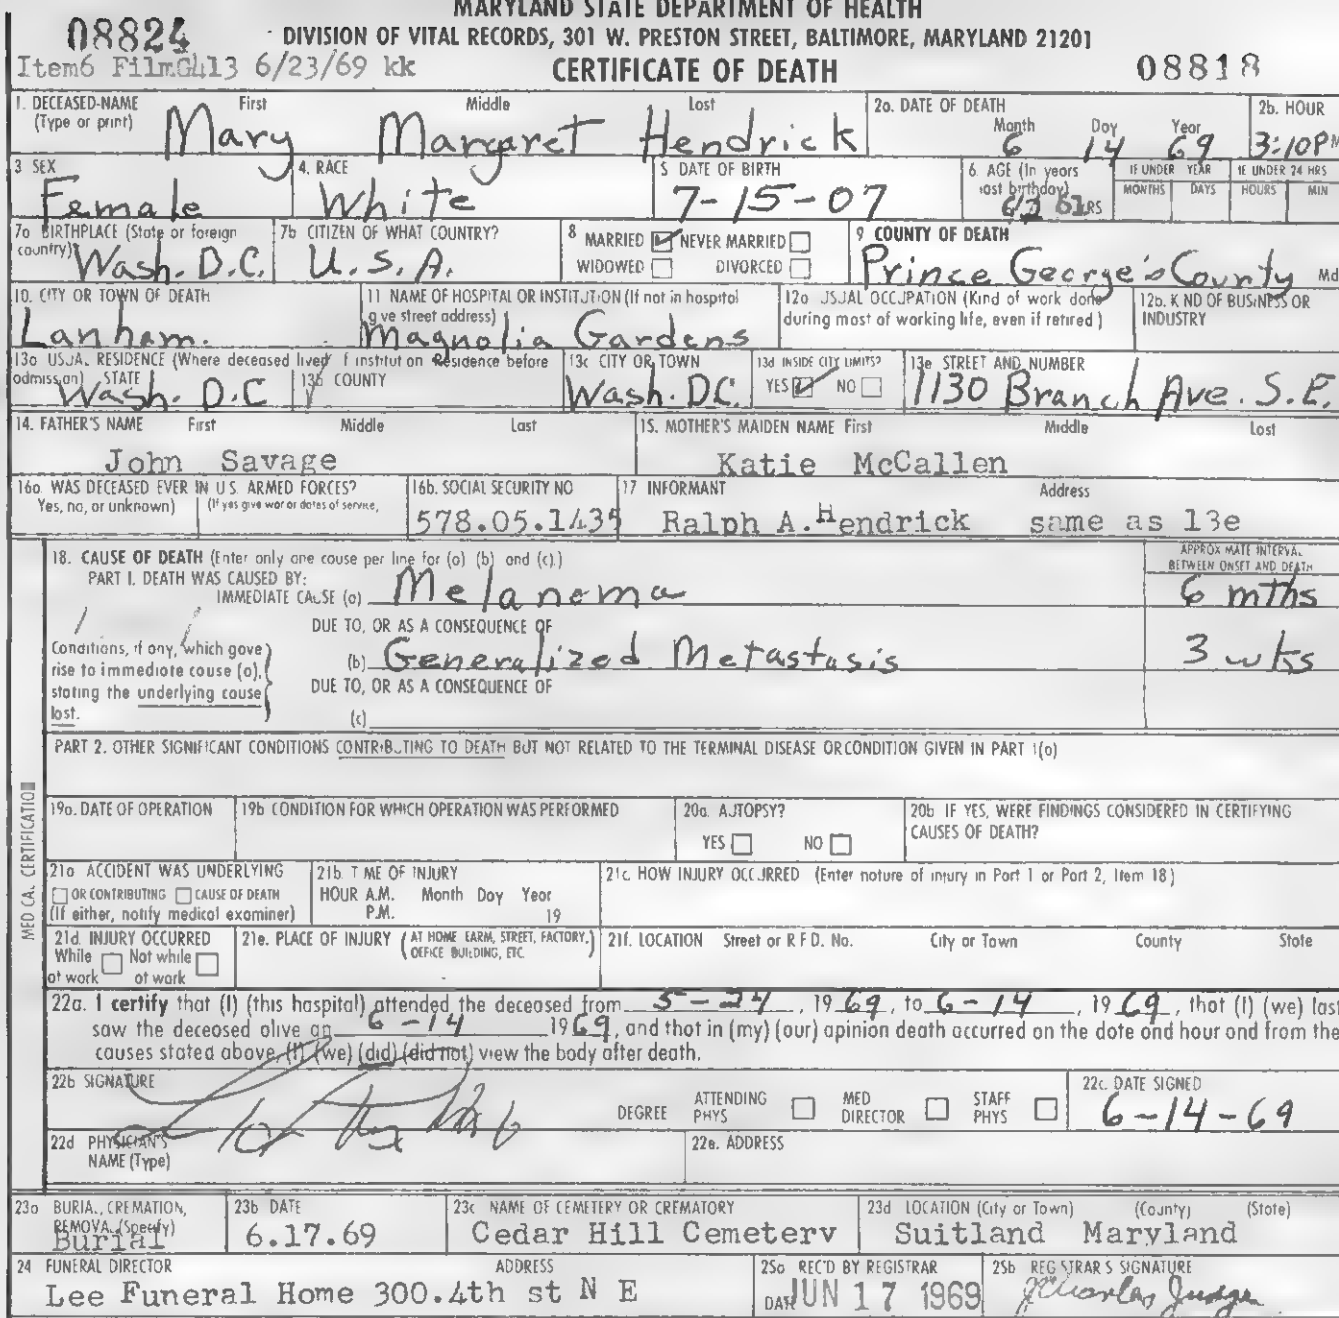 MARYLAND STATE DEPARTMENT OF HEALTH
08824 DIVISION OF VITAL RECORDS, 301 W. PRESTON STREET, BALTIMORE, MARYLAND 21201
Item6 FilmG413 6/23/69 kk CERTIFICATE OF DEATH 08818
1. DECEASED-NAME (Type or print) First Middle Last 2a. DATE OF DEATH Month Day Year 2b. HOUR
Mary Margaret Hendrick 6 14 69 3:10PM
3 SEX 4. RACE 5 DATE OF BIRTH 6. AGE (In years last birthday) IF UNDER YEAR MONTHS DAYS IF UNDER 24 HRS HOURS MIN
Female White 7-15-07 61 YRS
7a BIRTHPLACE (State or foreign country) 7b CITIZEN OF WHAT COUNTRY? 8 MARRIED NEVER MARRIED WIDOWED DIVORCED 9 COUNTY OF DEATH
Wash. D.C. U.S.A. Prince George's County Md
10. CITY OR TOWN OF DEATH 11 NAME OF HOSPITAL OR INSTITUTION (If not in hospital give street address) 12a USUAL OCCUPATION (Kind of work done during most of working life, even if retired) 12b. KIND OF BUSINESS OR INDUSTRY
Lanham. Magnolia Gardens
13a USUAL RESIDENCE (Where deceased lived if institution Residence before admission) STATE 13b COUNTY 13c CITY OR TOWN 13d INSIDE CITY LIMITS? YES NO 13e STREET AND NUMBER
Wash. D.C Wash. DC. 1130 Branch Ave. S.E.
14. FATHER'S NAME First Middle Last 15. MOTHER'S MAIDEN NAME First Middle Last
John Savage Katie McCallen
16a. WAS DECEASED EVER IN U.S. ARMED FORCES? Yes, no, or unknown) (If yes give war or dates of service, 16b. SOCIAL SECURITY NO 17 INFORMANT Address
578.05.1435 Ralph A. Hendrick same as 13e
18. CAUSE OF DEATH (Enter only one cause per line for (a) (b) and (c).) APPROXIMATE INTERVAL BETWEEN ONSET AND DEATH
PART I. DEATH WAS CAUSED BY:
IMMEDIATE CAUSE (a) Melanoma 6 mths
DUE TO, OR AS A CONSEQUENCE OF
Conditions, if any, which gave rise to immediate cause (a), stating the underlying cause last.
(b) Generalized Metastasis 3 wks
DUE TO, OR AS A CONSEQUENCE OF
(c)
PART 2. OTHER SIGNIFICANT CONDITIONS CONTRIBUTING TO DEATH BUT NOT RELATED TO THE TERMINAL DISEASE OR CONDITION GIVEN IN PART 1(a)
MEDICAL CERTIFICATION
19a. DATE OF OPERATION 19b CONDITION FOR WHICH OPERATION WAS PERFORMED 20a. AUTOPSY? YES NO 20b IF YES, WERE FINDINGS CONSIDERED IN CERTIFYING CAUSES OF DEATH?
21a ACCIDENT WAS UNDERLYING OR CONTRIBUTING CAUSE OF DEATH (If either, notify medical examiner) 21b. TIME OF INJURY HOUR A.M. P.M. Month Day Year 19 21c. HOW INJURY OCCURRED (Enter nature of injury in Part 1 or Part 2, Item 18)
21d. INJURY OCCURRED While at work Not while at work 21e. PLACE OF INJURY (AT HOME FARM, STREET, FACTORY, OFFICE BUILDING, ETC. 21f. LOCATION Street or R F D. No. City or Town County State
22a. I certify that (I) (this hospital) attended the deceased from 5-24, 1969, to 6-14, 1969, that (I) (we) last
saw the deceased alive on 6-14 1969, and that in (my) (our) opinion death occurred on the date and hour and from the
causes stated above, (I) (we) (did) (did not) view the body after death.
22b SIGNATURE DEGREE ATTENDING PHYS MED DIRECTOR STAFF PHYS 22c. DATE SIGNED
6-14-69
22d PHYSICIAN'S NAME (Type) 22e. ADDRESS
23a BURIAL, CREMATION, REMOVAL (Specify) 23b DATE 23c NAME OF CEMETERY OR CREMATORY 23d LOCATION (City or Town) (County) (State)
Burial 6.17.69 Cedar Hill Cemetery Suitland Maryland
24 FUNERAL DIRECTOR ADDRESS 25a REC'D BY REGISTRAR 25b REGISTRAR'S SIGNATURE
Lee Funeral Home 300.4th st N E DATE JUN 17 1969 Charles Judge